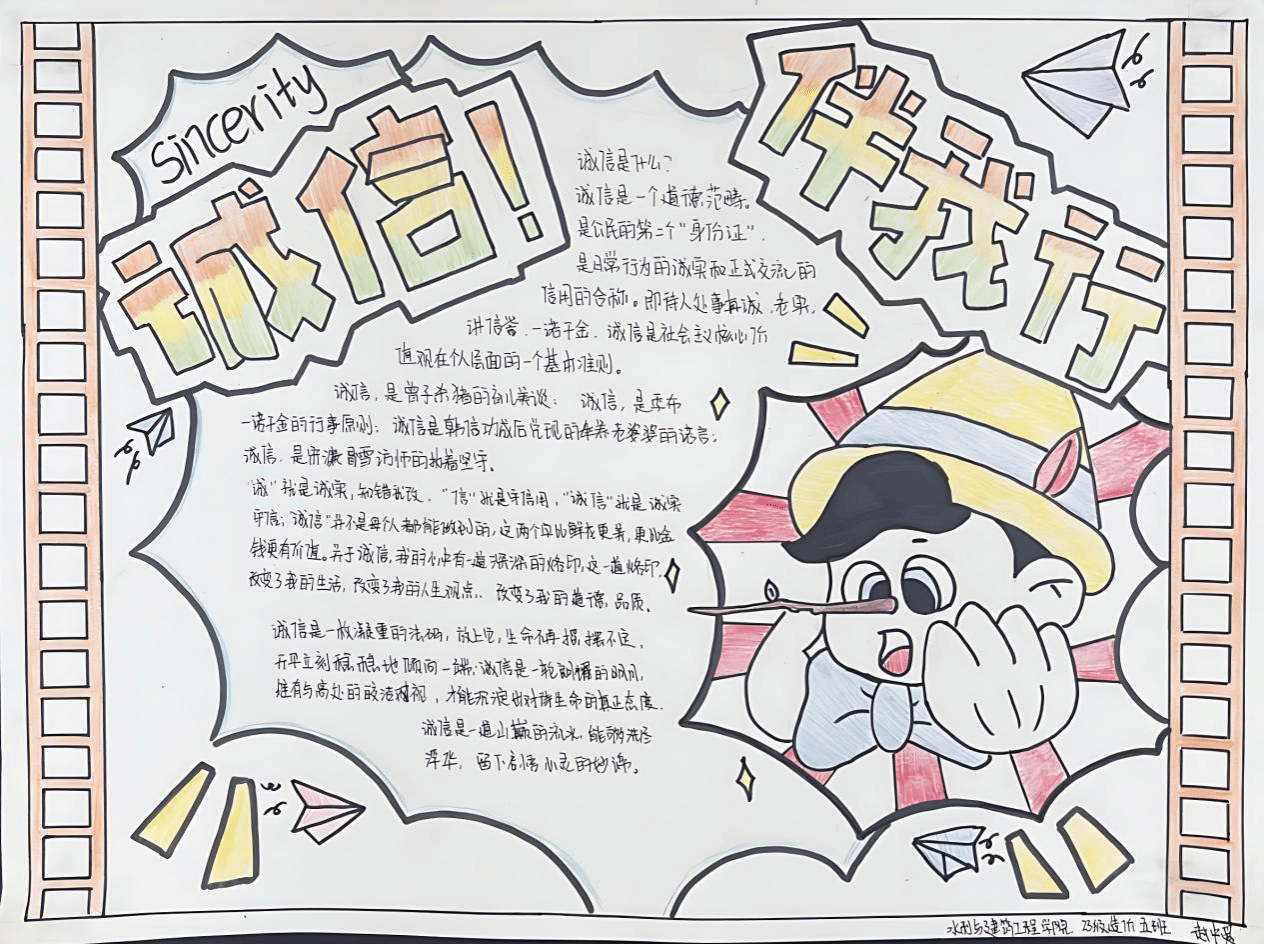 sincerity
诚信!
伴我行
诚信是什么?
诚信是一个道德范畴。
是公民的第二个“身份证”.
是日常行为的诚实和正式交流的
信用的合称。即待人处事真诚、老实,
讲信誉.一诺千金.诚信是社会主义核心价
值观在个人层面的一个基本准则。
诚信,是曾子杀猪的美谈; 诚信,是季布
一诺千金的行事原则; 诚信是韩信功成后兑现的奉养老婆婆的诺言;
诚信,是宋濂冒雪访师的执着坚守。
“诚”就是诚实,知错就改.“信”就是守信用,“诚信”就是诚实
守信;诚信”并不是每个人都能做到的,这两个字比鲜花更美,更比金
钱更有价值。关于诚信,我的心中有一道深深的烙印,这一道烙印.
改变了我的生活,改变了我的人生观点、 改变了我的道德、品质.
诚信是一枚凝重的砝码,放上它,生命不再摇摆不定,
天平立刻稳稳地倾向一端;诚信是一轮明月,
唯有与高处的皎洁对视,才能沉淀出对待生命的真正态度.
诚信是一道山巅的流水,能够洗尽
浮华, 留下心灵的妙谛。
水利与建筑工程学院 23级造价五班